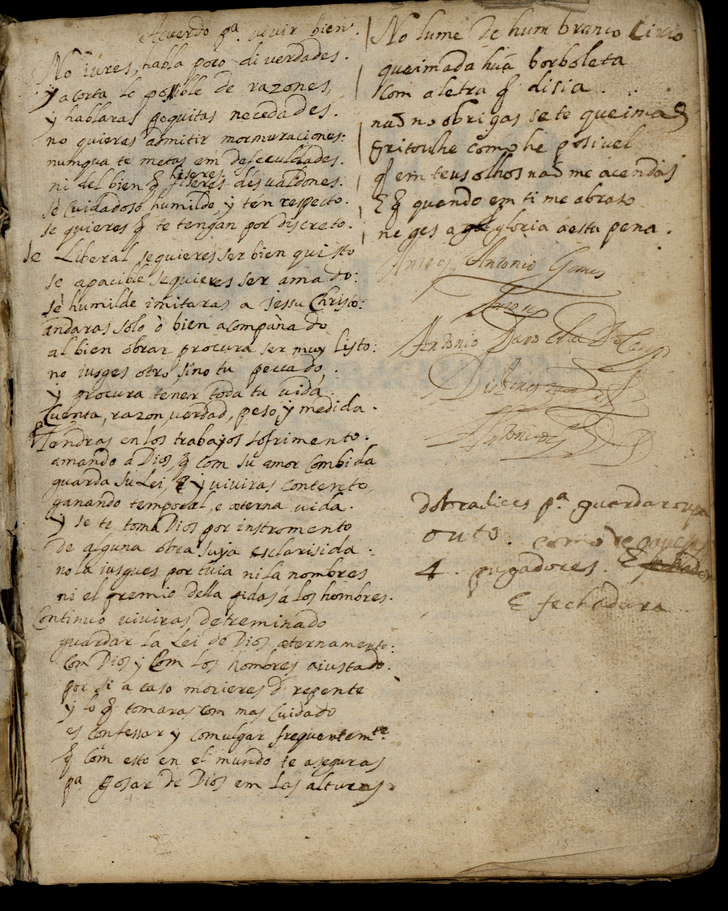 Acuerdo pª vivir bien
No iures, habla poco di verdades.
y acorta lo posible de razones,
y hablaras poquitas necedades.
no quieras admitir mormuraciones:
numqua te metas em deficuldades.
ni del bien q̃ hizieres
des valdones.
se Cuidadoso humilde, y ten respecto.
se quieres q̃ te tengan por discreto.
se Liberal se quieres ser bien quisto
se apacible se quieres ser amado:
se humilde imitaras a Jessu Christo:
andaras solo ò bien acompañado
al bien obrar procura ser muy listo:
no iusges otro sino tu peccado.
y procura tener toda tu vida
Cuenta, razon, verdad, peso, y medida.
Tendras en los trabajos sofrimento.
amando a Dios, q̃ com su amor Combida
guarda su Lei, y viviras contento,
ganando temporal, e æterna vida.
y se te toma Dios por instromento
de alguna obra suja esclarisida.
no la iusgues por tuia ni la nombres
ni el premio della pidas á los hombres.
Continuo viviras detreminado
guardar la Lei do Dios æternamente:
Con Dios y Com los hombres aiustado.
por si a caso morieres d' repente
y lo q̃ tomaras com mas Cuidado
es Confessar y Comulgar frequentemte.
q̃ com esto en el mundo te aseguras
pª gosar de Dios em las alturas
No lume de hum branco Cirio
queimada huã borboleta
Com a letra q̃ disia.
naõ no obrigas se te queimas
Gritoulhe como he posivel
q̃ em teus olhos naõ me acendas
E q̃ quando em ti me abraso
negues a gloria a esta pena.
Antonio Gomes
Antonio
dobradices pª guardar
outo.
4. pugadores. E
E fechadura